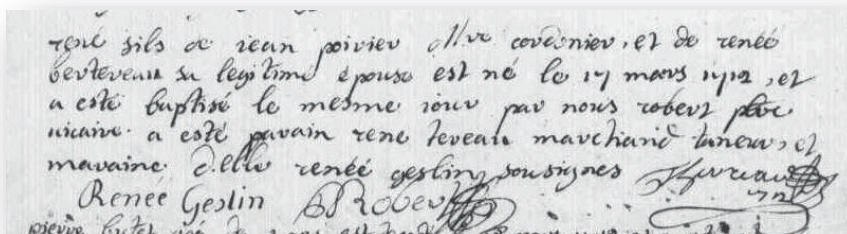 rené fils de jean poirier mtre cordonier, et de renée
berteveau sa legitime épouse est né le 17 mars 1712, et
a esté baptisé le mesme iour par nous robert ptre
vicaire. a esté parain rene teveau marchand taneur, et
maraine delle renée geslin sousignes
Renée Geslin Robert